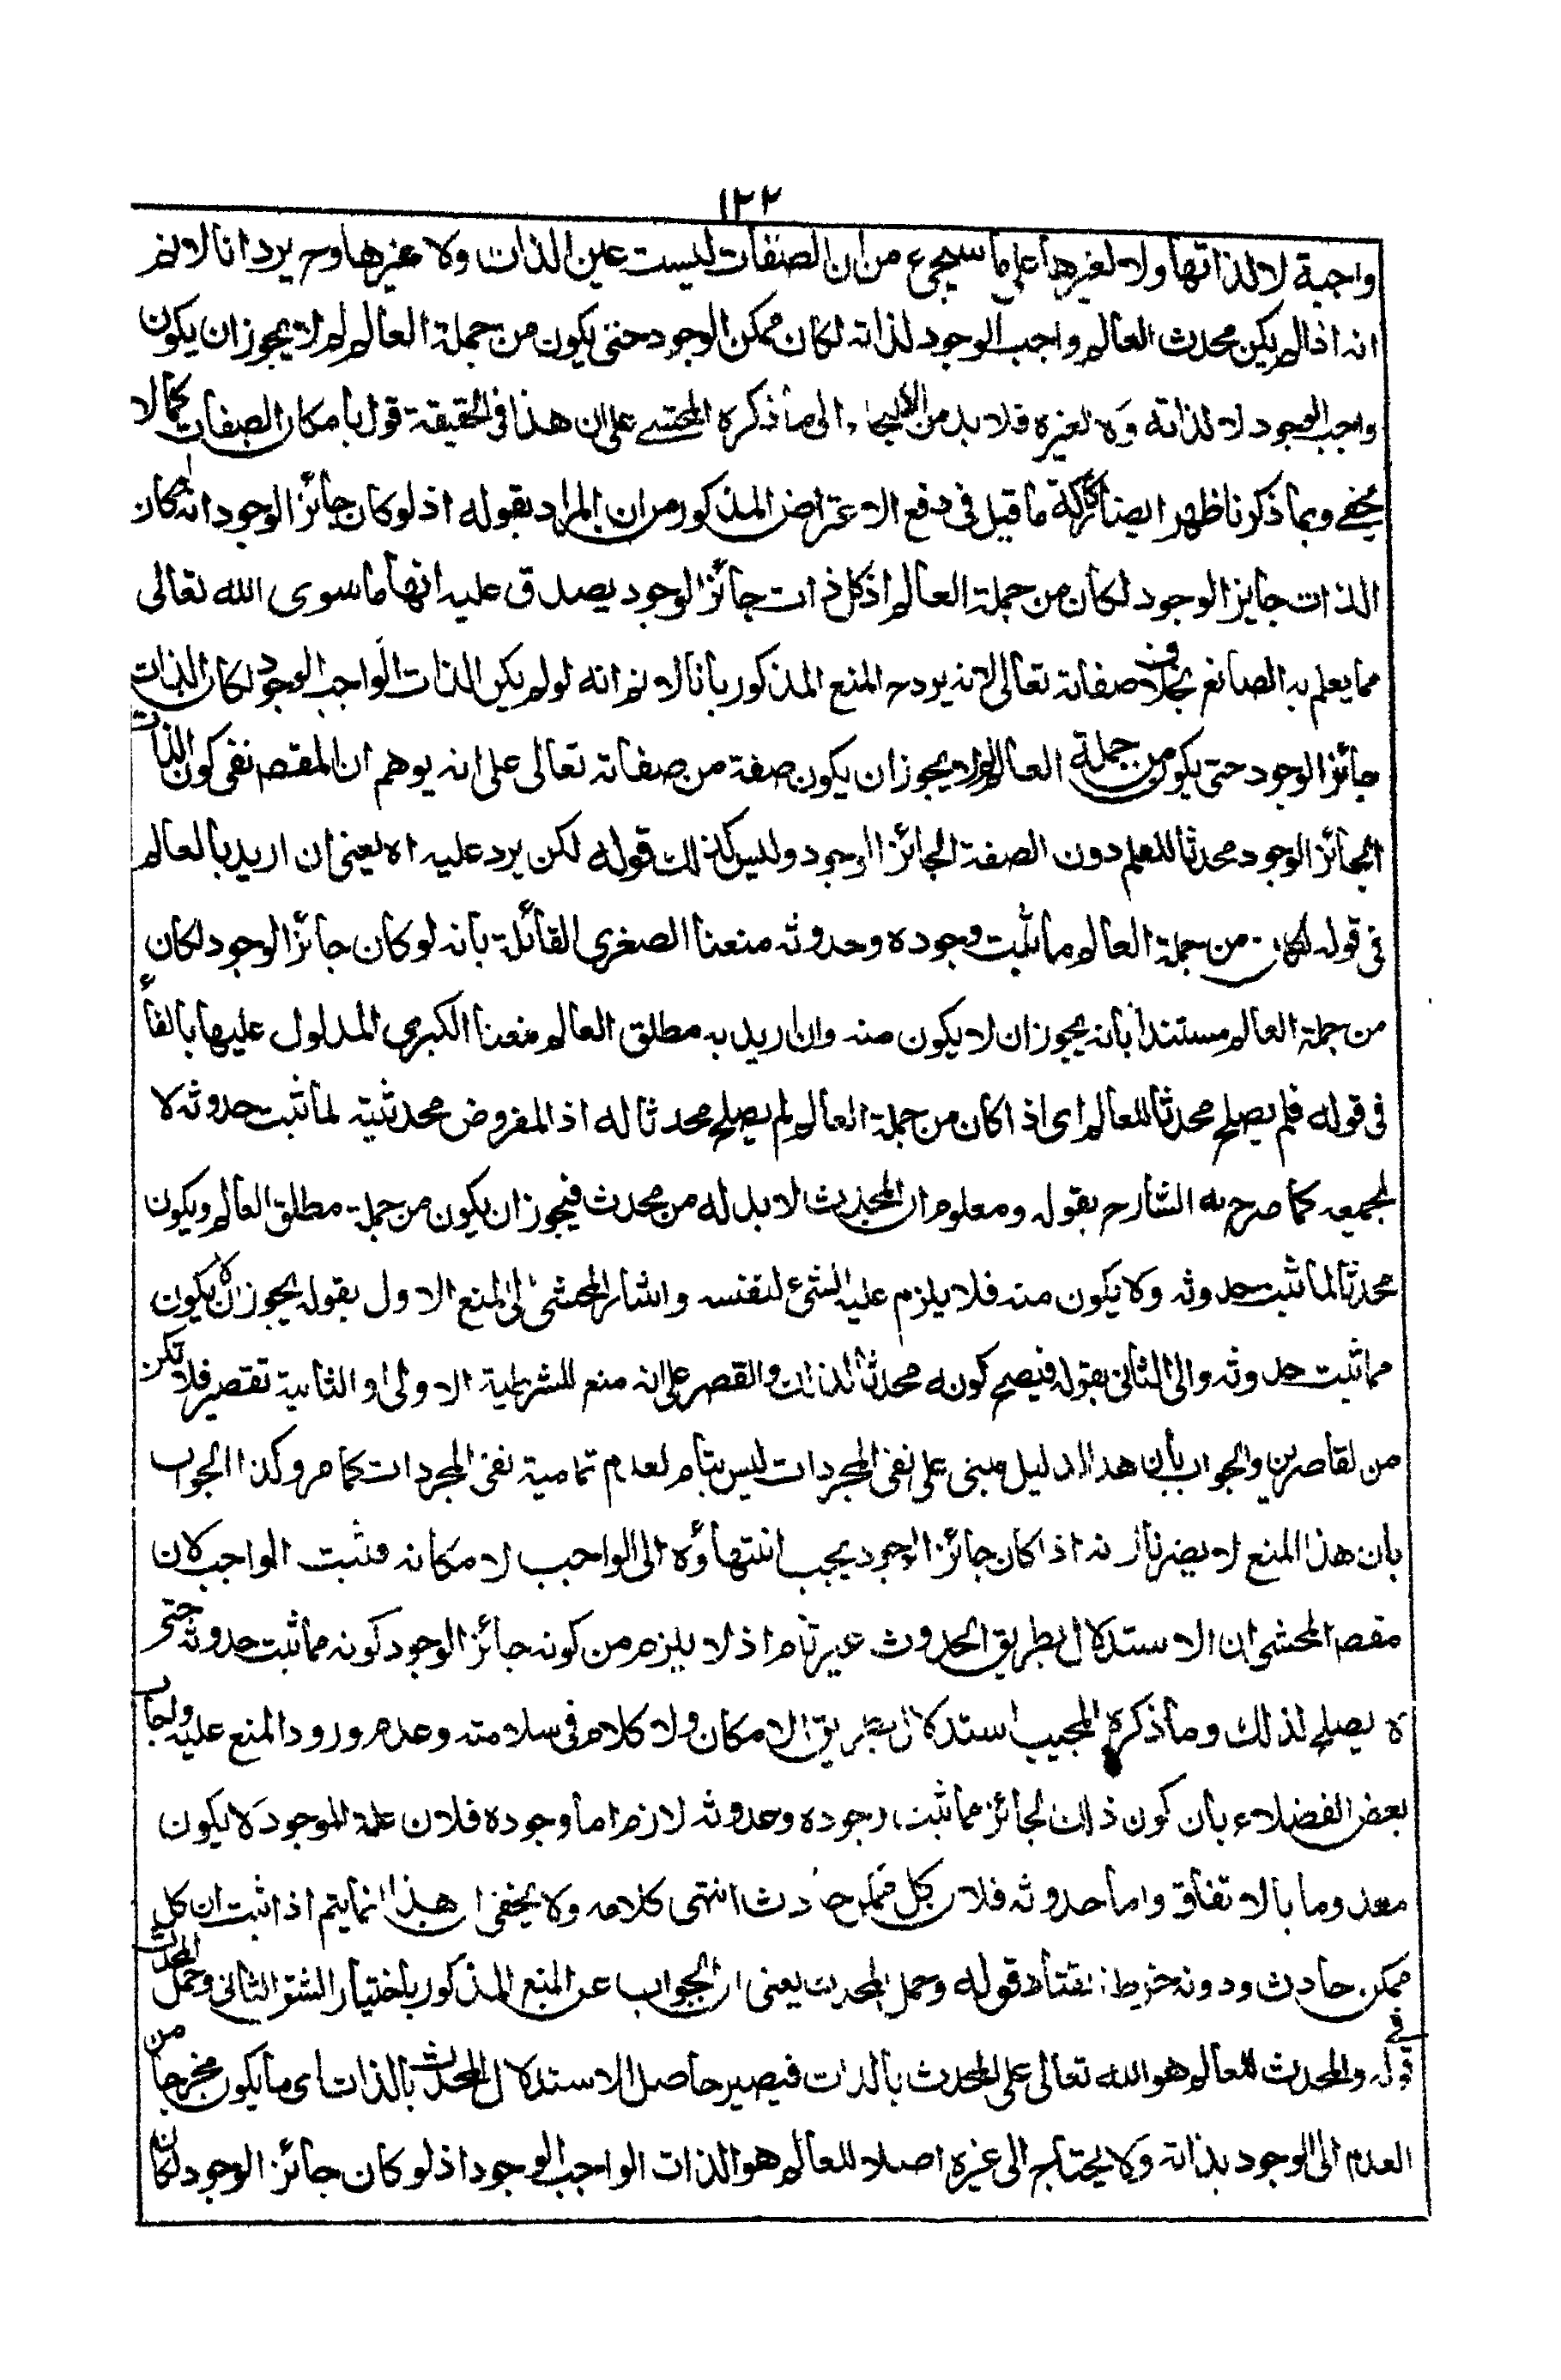 ١٢٢
واجبة لا لذاتها ولا لغيرها على ما سيجيء من ان الصفات ليست عين الذات ولا غيرها وح يرد انا لا نم
انه اذا لم يكن محدث العالم واجب الوجود لذاته لكان ممكن الوجود حتى يكون من جملة العالم لم لا يجوز ان يكون
واجب الوجود لا لذاته ولا لغيره فلا بد من الالتجاء الى ما ذكره المحشى على ان هذا فى الحقيقة قول بامكان الصفات كما لا
يخفى وبما ذكرنا ظهر ايضا ركاكة ما قيل فى دفع الاعتراض المذكور من ان المراد بقوله اذ لو كان جائز الوجود انه لو كان
الذات جايز الوجود لكان من جملة العالم اذ كل ذات جائز الوجود يصدق عليه انها ما سوى الله تعالى
مما يعلم به الصانع بخلاف صفاته تعالى لانه يرد ح المنع المذكور بانا لا نم انه لو لم يكن الذات الواجب الوجود لكان الذات
جائز الوجود حتى يكون من جملة العالم لم لا يجوز ان يكون صفة من صفاته تعالى على انه يوهم ان المقصه نفى كون الذات
الجائز الوجود محدثا للعالم دون الصفة الجائز الوجود وليس كذلك قوله لكن يرد عليه اه يعنى ان اريد بالعالم
فى قوله لكان من جملة العالم ما ثبت وجوده وحدوثه منعنا الصغرى القائلة بانه لو كان جائز الوجود لكان
من جملة العالم مستندا بانه يجوز ان لا يكون منه وان اريد به مطلق العالم منعنا الكبرى المدلول عليها بالفاء
فى قوله فلم يصلح محدثا للعالم اى اذا كان من جملة العالم لم يصلح محدثا له اذ المفروض محدثيته لما ثبت حدوثه لا
لجميعه كما صرح به الشارح بقوله ومعلوم ان المحدث لا بد له من محدث فيجوز ان يكون من جملة مطلق العالم ويكون
محدثا لما ثبت حدوثه ولا يكون منه فلا يلزم علية الشئ لنفسه واشار المحشى الى المنع الاول بقوله يجوز ان لا يكون
مما ثبت حدوثه والى الثانى بقوله فيصح كونه محدثا لذلك والقصر على انه منع للشرطية الاولى او الثانية تقصير فلا تكن
من القاصرين والجواب بان هذا الدليل مبنى على نفى المجردات ليس بتام لعدم تمامية نفى المجردات كما مر وكذا الجواب
بان هذا المنع لا يضرنا لانه اذا كان جائز الوجود يجب انتهاؤه الى الواجب لامكانه فثبت الواجب لان
مقصه المحشى ان الاستدلال بطريق الحدوث غير تام اذ لا يلزم من كونه جائز الوجود كونه مما ثبت حدوثه حتى
لا يصلح لذلك وما ذكره المجيب استدلال بطريق الامكان ولا كلام فى سلامته وعدم ورود المنع عليه واجاب
بعض الفضلاء بان كون ذلك الجائز مما ثبت وجوده وحدوثه لازم اما وجوده فلان علة الموجود لا يكون
معدوما بالاتفاق واما حدوثه فلان كل ممكن حادث انتهى كلامه ولا يخفى ان هذا انما يتم اذا ثبت ان كل
ممكن حادث ودونه خرط القتاد قوله وحمل المحدث يعنى ان الجواب عن المنع المذكور باختيار الشق الثانى وحمل المحدث
فى قوله والمحدث للعالم هو الله تعالى على المحدث بالذات فيصير حاصل الاستدلال المحدث بالذات اى ما يكون مخرجا من
العدم الى الوجود بذاته ولا يحتاج الى غيره اصلا للعالم هو الذات الواجب الوجود اذ لو كان جائز الوجود لكان